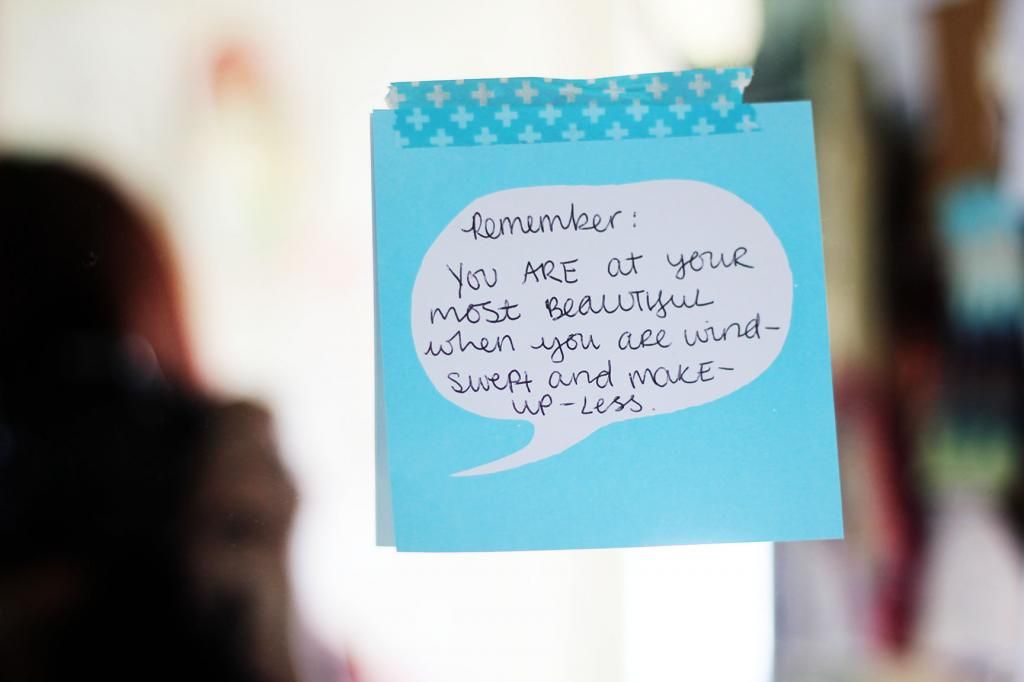 Remember:
YOU ARE at YOUR
most BEAUTIFUL
when you are wind-
swept and make-
up-less.